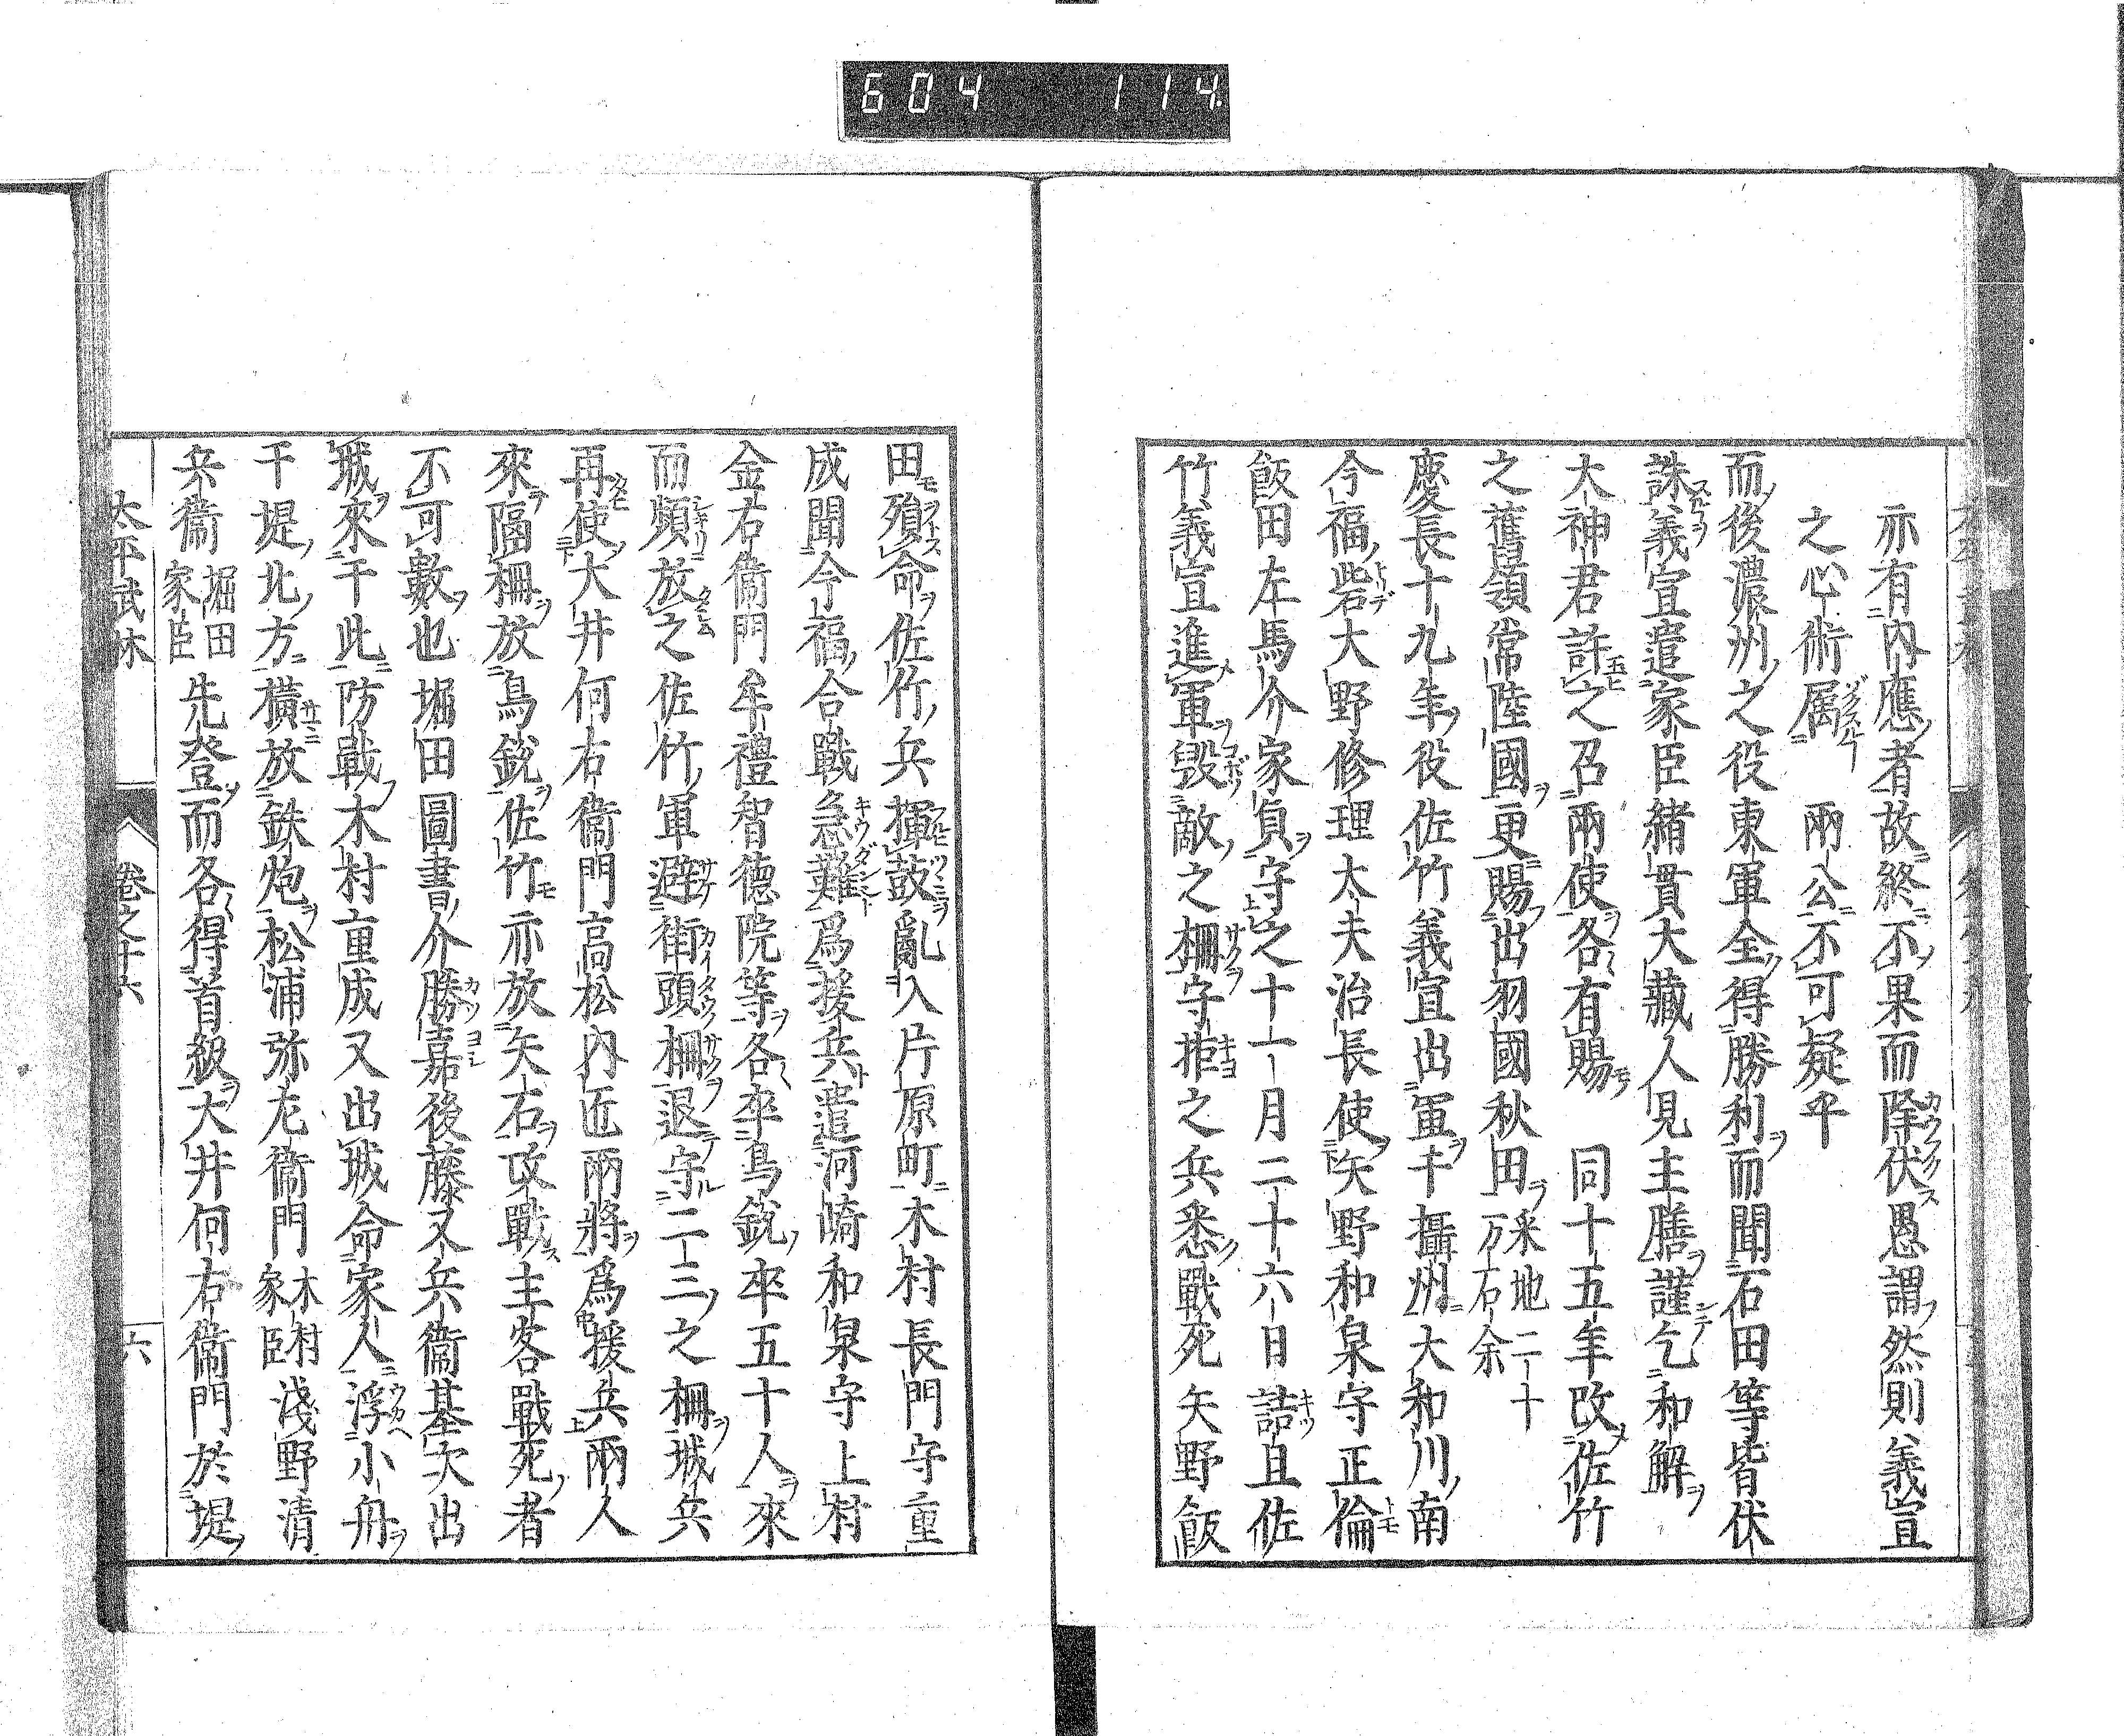 604 114
亦有内應者故終不果而降伏愚謂然則義宣
之心術属兩公不可疑乎
而後濃州之役東軍全得勝利而聞石田等皆伏
誅義宣遣家臣緒貫大藏人見主膳謹乞和解
大神君許之召兩使各有賜 同十五年改佐竹
之舊領常陸國更賜出羽國秋田采地二十万石余
慶長十九年役佐竹義宣出軍于攝州大和川南
今福砦大野修理太夫治長使矢野和泉守正倫
飯田左馬介家負守之十一月二十六日詰且佐
竹義宣進軍毀敵之柵守拒之兵悉戰死矢野飯
田殞命佐竹兵揮鼓亂入片原町木村長門守重
成聞今福合戰急難爲援兵遣河崎和泉守上村
金右衞門牟禮智德院等各卒鳥銃卒五十人來
而頻放之佐竹軍避街頭柵退守二三之柵城兵
再使大井何右衞門高松内匠兩將爲援兵兩人
來隔柵放鳥銃佐竹亦放矢石攻戰主客戰死者
不可數也堀田圖書介勝嘉後藤又兵衞基次出
城來于此防戰木村重成又出城命家人浮小舟
于堤北方橫放鉄炮松浦弥左衞門木村家臣淺野清
兵衞堀田家臣先登而各得首級大井何右衞門於堤
太平武林 卷之十六 六